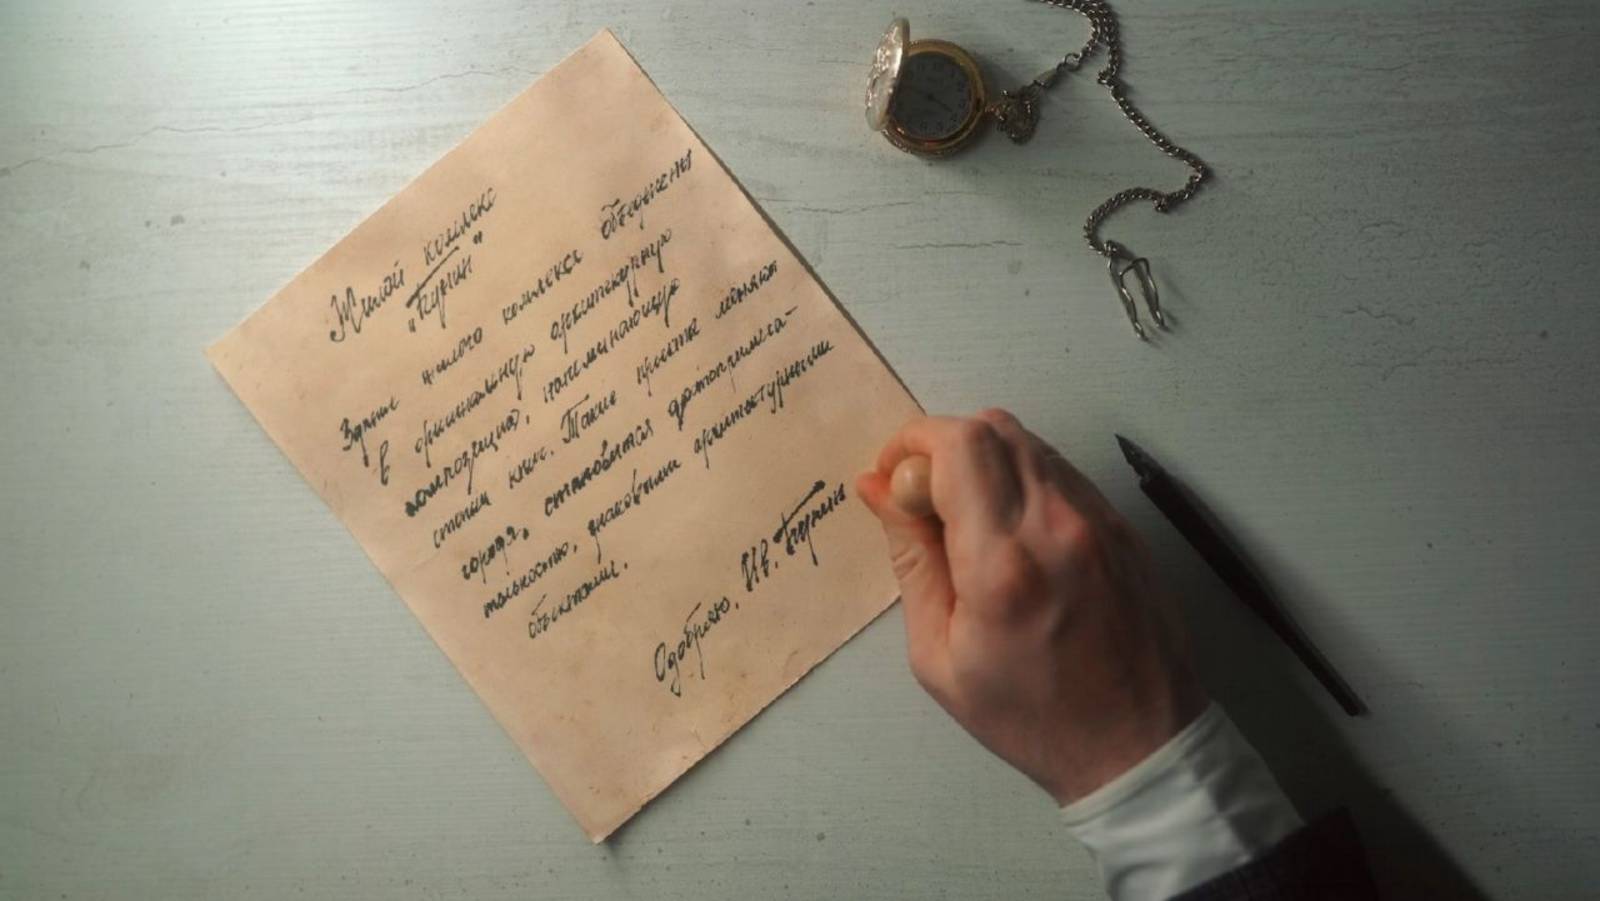 Жилой комплекс
"Бунин"
Здания жилого комплекса объединены
в оригинальную архитектурную
композицию, напоминающую
стопки книг. Такие проекты меняют
города, становятся достопримеча-
тельностью, знаковыми архитектурными
объектами.
Одобряю. Ив. Бунин